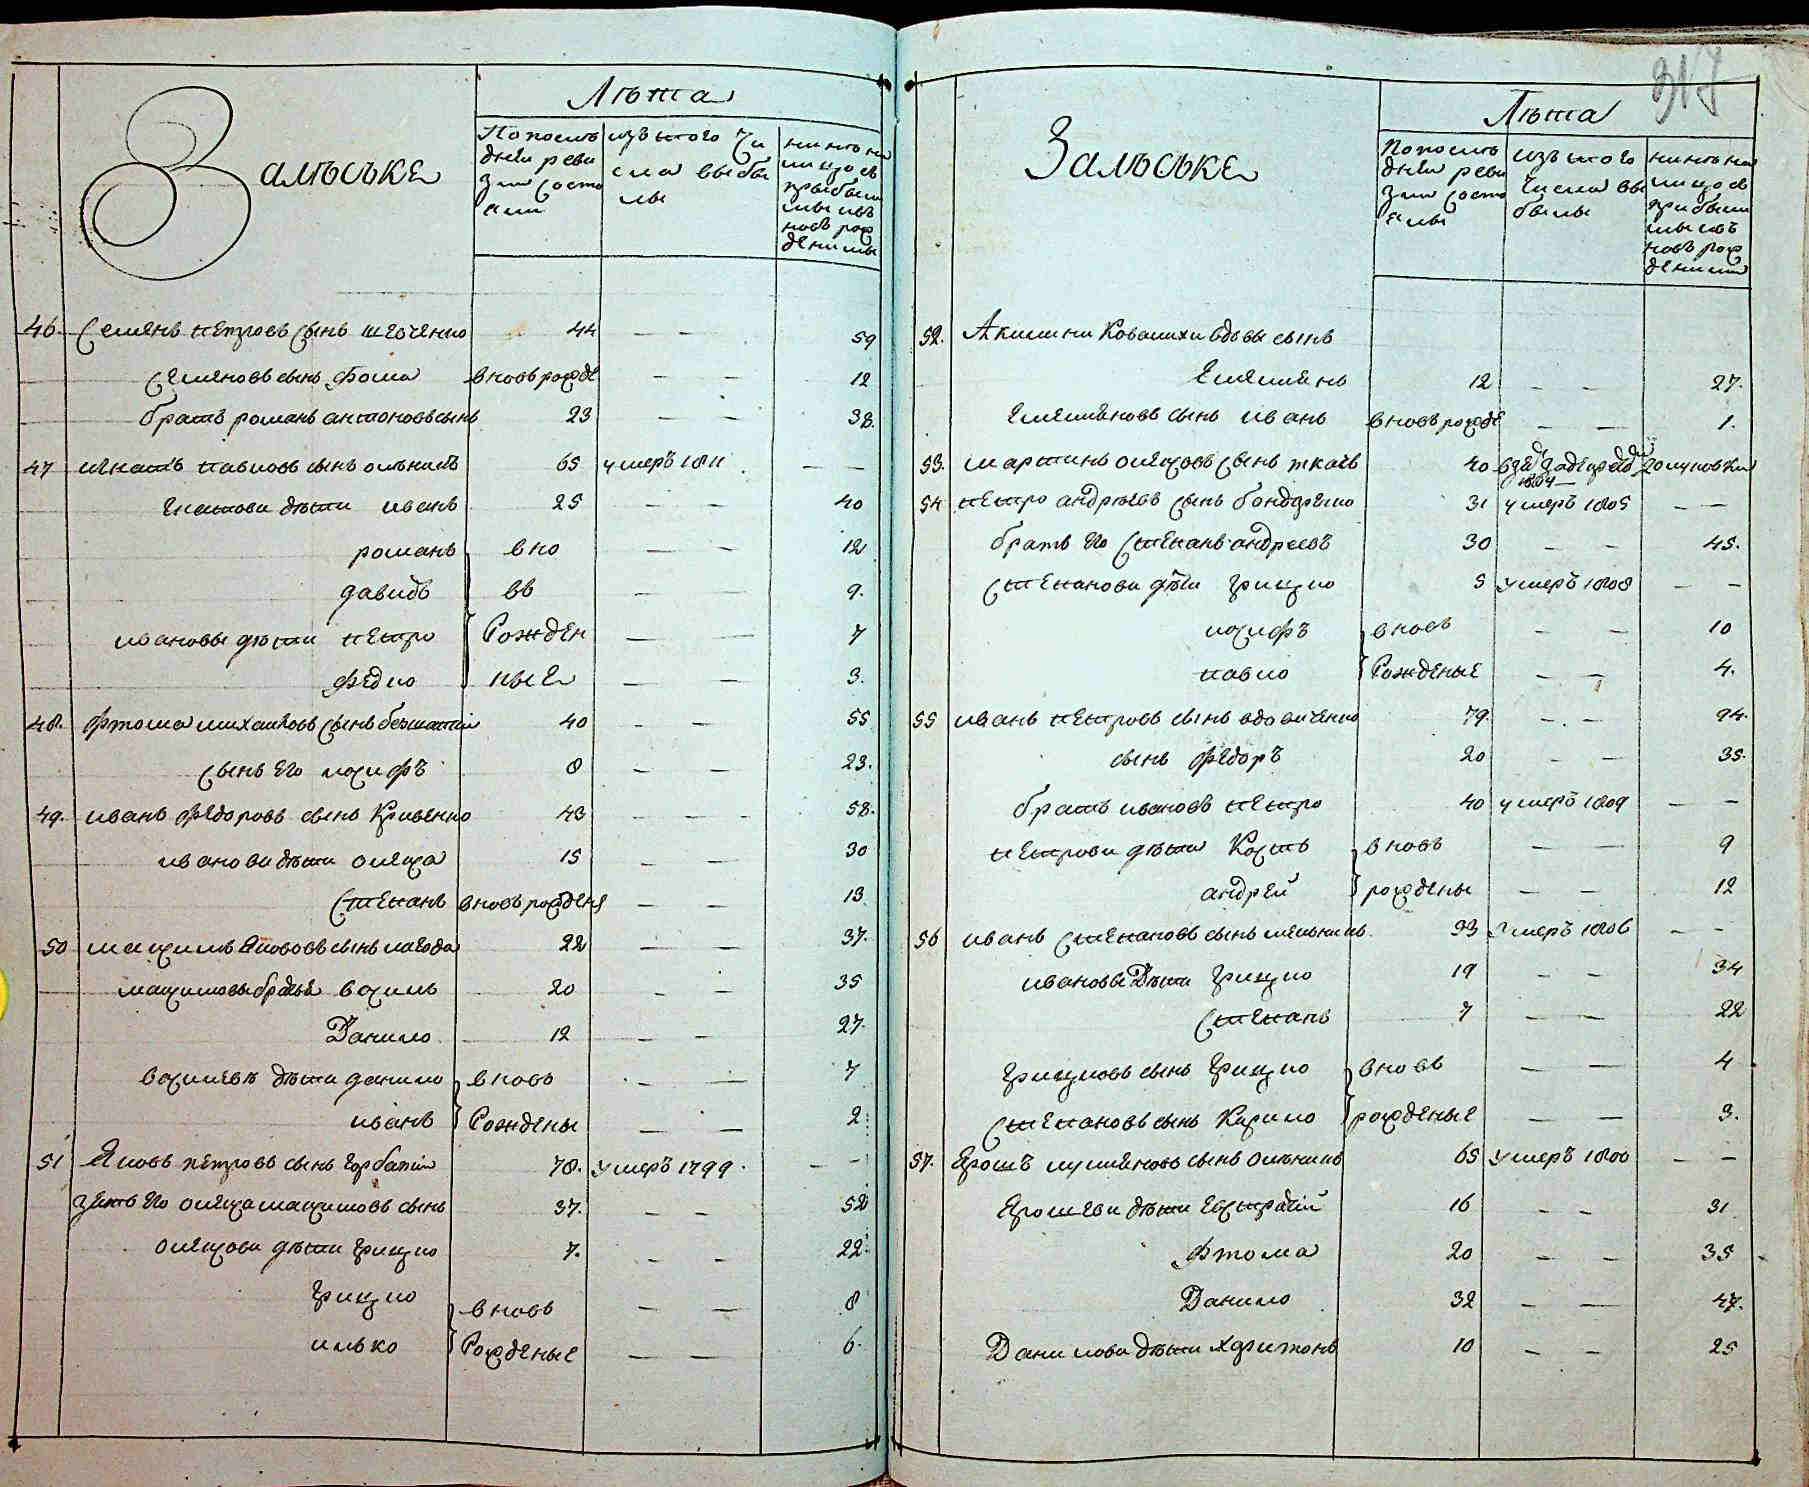 Залѣське
Лѣта
По послѣ
дней реви
зии состо
яли
изъ того чи
сла выбы
лы
нинѣ на
лицо съ
прыбылы
мы изъ
новъ рож
денимы
46. Семенъ петровъ сынъ шевченко 44 — — 59
Семеновъ сынъ фома вновъ рожде — — 12
братъ романъ антоновъ сынъ 23 — — 38.
47 игнатъ павловъ сынъ олѣникъ 65 умеръ 1811 — —
Игнатови дѣти иванъ 25 — — 40
романъ вно — — 12
давидъ въ — — 9.
ивановы дѣти петро Рожден — — 7
федко ные — — 3.
48. фтома михайловъ сынъ 40 — — 55
сынъ его иосифъ 8 — — 23.
49. иванъ федоровъ сынъ Кривенко 43 — — — 58.
иванови дѣти олекса 15 — — 30
Степанъ вновъ рождены — — 13
50 максимъ Якововъ сынъ 22 — — 37.
максимовы братье василь 20 — — 35
Данило 12 — — 27.
василевы дѣти данило вновъ — — 7
иванъ Рождены — — 2
51 Яковъ петровъ сынъ горбатий 78. умеръ 1799. — —
зять его олекса максимовъ сынъ 37. — — 52
олексови дѣти грицко 7. — — 22.
грицко вновъ — — 8
илько Рожденые — — 6.
317
Залѣське
Лѣта
По послѣ
дней реви
зии состо
ялы
изъ того
числа вы
былы
нинѣ на
лицо съ
прибылы
мы изъ
новъ рож
дения
52. Акилини Ковалихи вдовы сынъ
Емелянъ 12 — — 27.
Емеляновъ сынъ иванъ вновъ рожде — — 1.
53. мартинъ олексовъ сынъ ткачъ 40
1804
54 петро андрѣевъ сынъ бондаренко 31 умеръ 1805 — —
братъ его Степанъ андреевъ 30 — — 45.
Степанови дѣти грицко 5 умеръ 1808 — —
иосифъ вновъ — — 10
павло Рожденые — — 4.
55 иванъ петровъ сынъ вдовиченко 79. — — 94.
сынъ федоръ 20 — — 35.
братъ ивановъ петро 40 умеръ 1809 — —
петрови дѣти Кость вновъ — — 9
андрей рождены — — 12
56 иванъ Степановъ сынъ мельникъ. 53 умеръ 1806 — —
ивановы Дѣти грицко 19 — — 34
Степанъ 7 — — 22
грицковъ сынъ грицко вновъ — — 4
Степановъ сынъ Кирило рожденые — — 3.
57. Ярошъ сынъ олѣникъ 65 умеръ 1800 — —
Ярошеви дѣти Евстратий 16 — — 31
фтома 20 — — 35
Данило 32 — — 47.
Данилови дѣти Харитонъ 10 — — 25